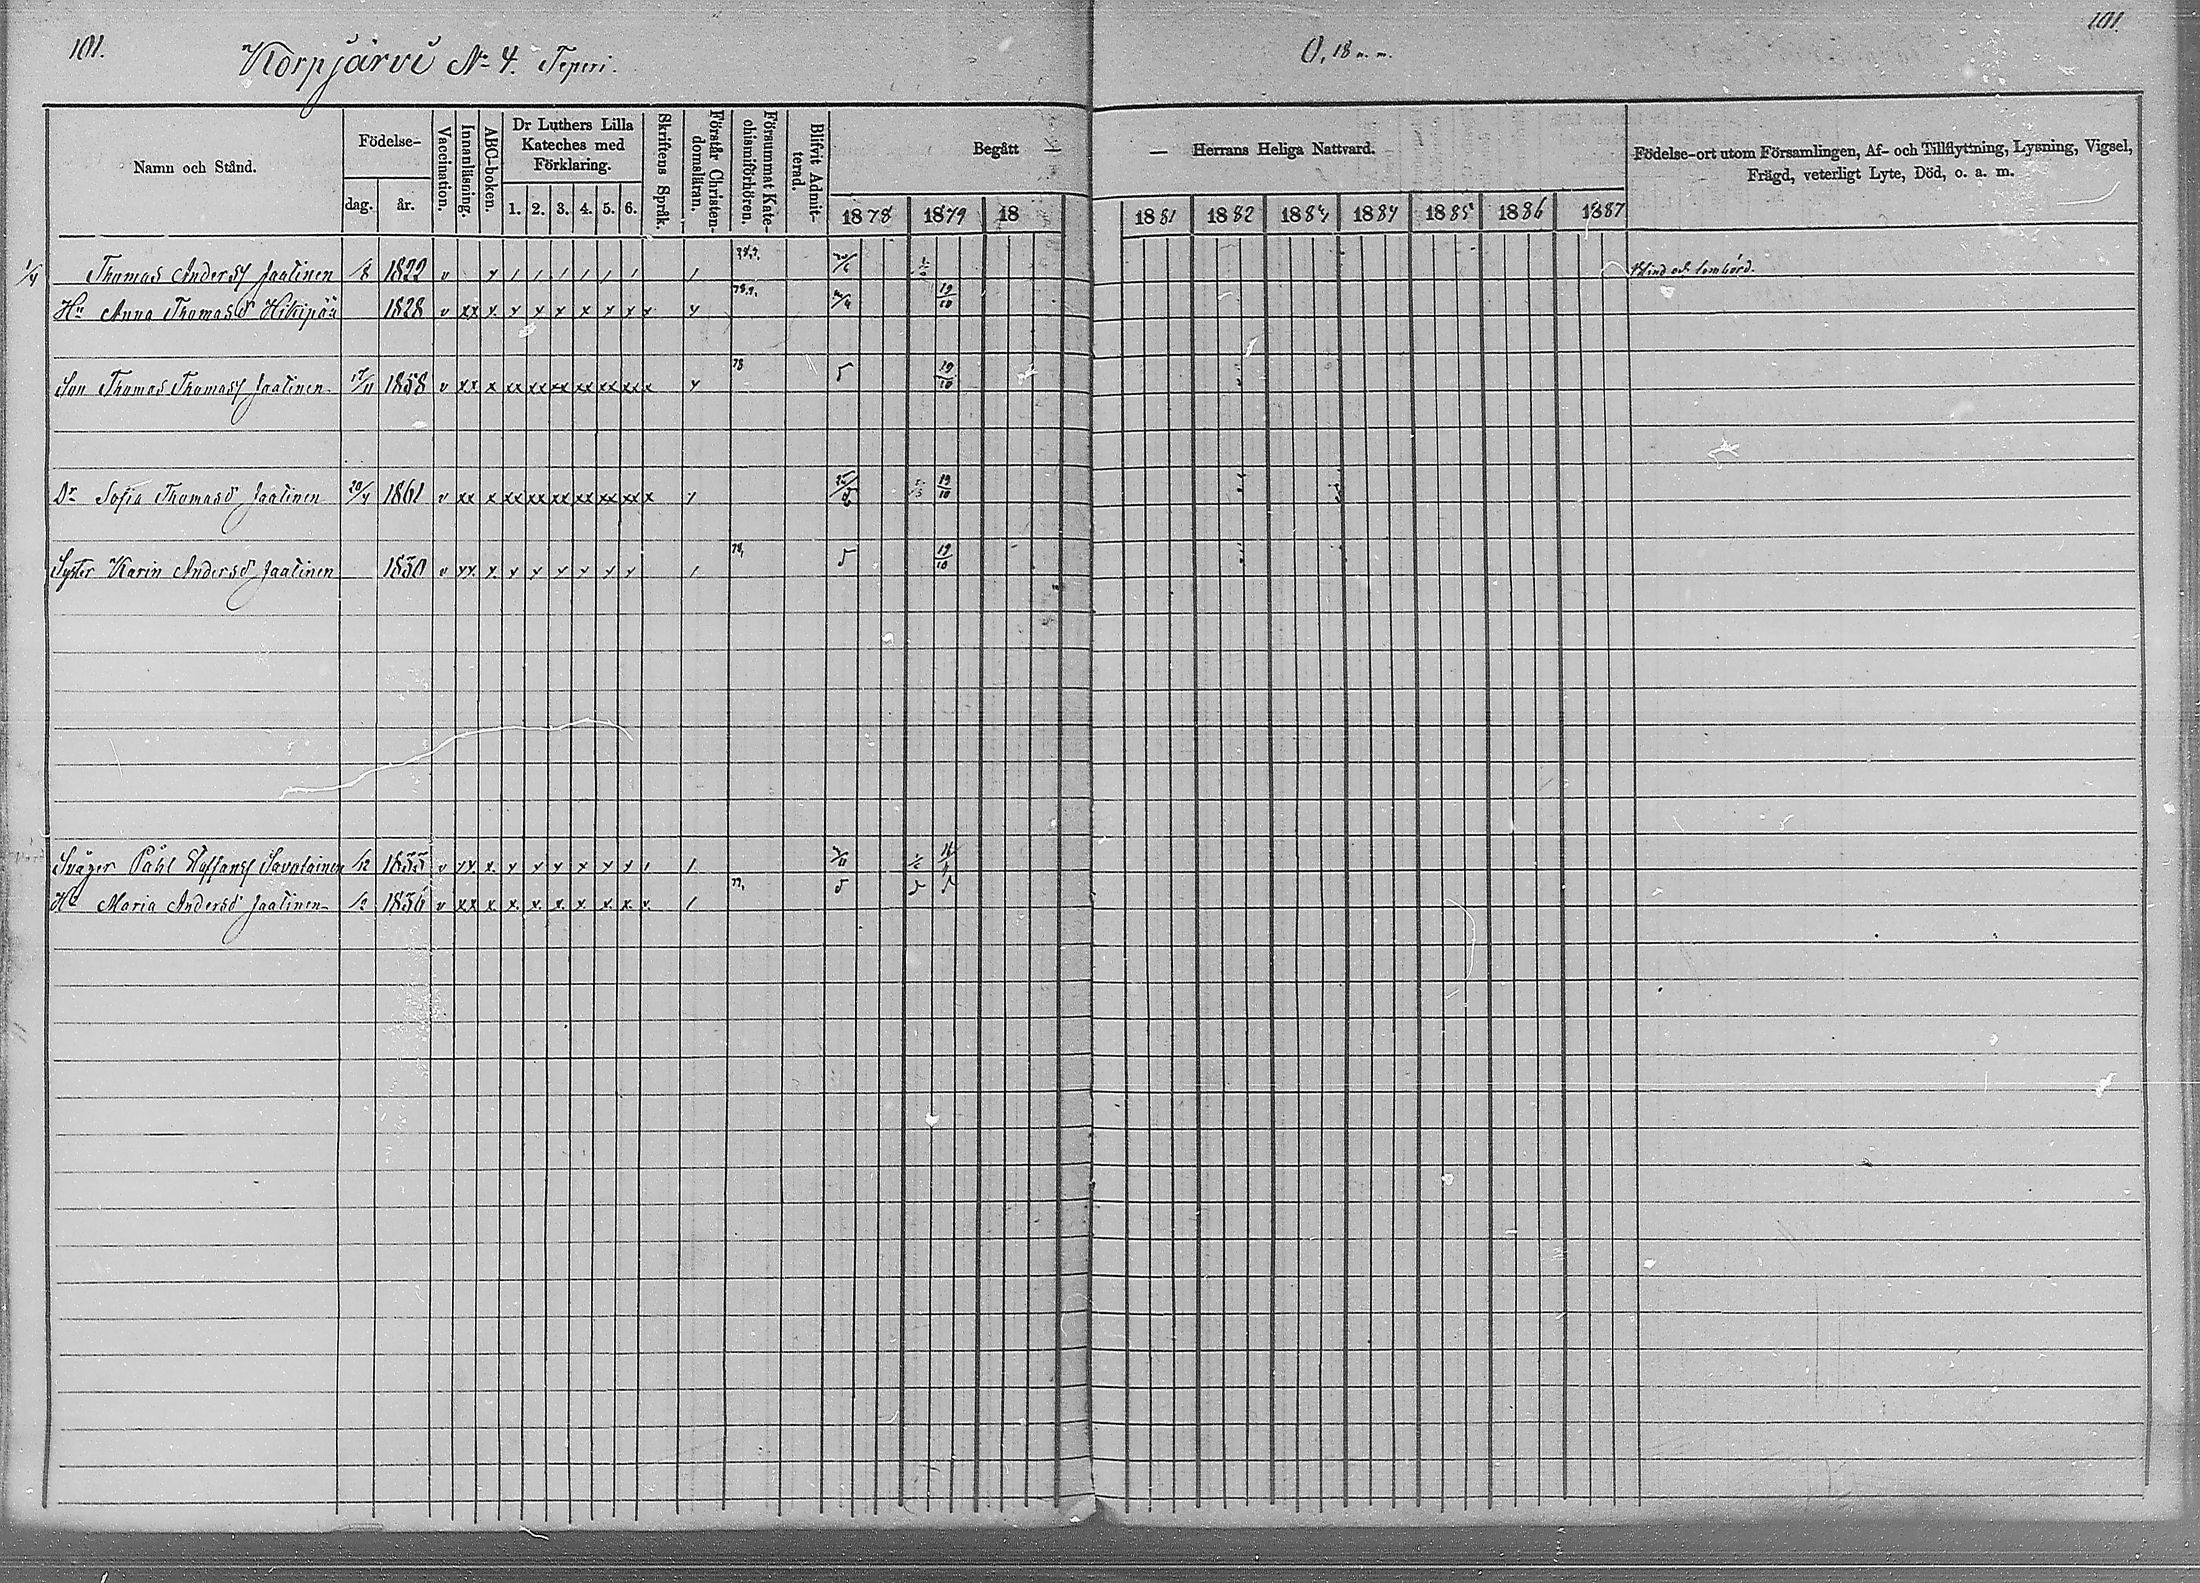 101.
Korpjärvi No 4. Teperi.
O, 18 n. m.
101.
Namn och Stånd.
Födelse-
dag.
år.
Vaccination.
Innanläsning.
ABC-boken.
Dr Luthers Lilla Kateches med Förklaring.
1. 2. 3. 4. 5. 6.
Skriftens Språk.
Förstår Christendomsläran.
Försummat Katechismiförhören.
Blifvit Admitterad.
Begått — — Herrans Heliga Nattvard.
1878 1879 18 1881 1882 1883 1884 1885 1886 1887
Födelse-ort utom Församlingen, Af- och Tillflyttning, Lysning, Vigsel, Frägd, veterligt Lyte, Död, o. a. m.
1/4 Thomas Andersf Jaatinen /8 1822 v y / / / / / / / 78,9. Blind och lomhörd.
Hu Anna Thomasd Hikipää 1828 v xx x. y y y x y x x y 78,9. 19/10
Son Thomas Thomasf Jaatinen 17/11 1858 v xx x xx xx xx xx xx xx x y 78 5 19/10
Dr Sofia Thomasd Jaatinen 20/4 1861 v xx x xx xx xx xx xx xx x y 19/10
Syster Karin Andersd Jaatinen 1830 v yy. y. y y y y y y / 78, 5 19/10
Svåger Påhl Staffansf Savolainen /12 1835 v yy. x. y y y x y y / /
Hu Maria Andersd Jaatinen /2 1836 v xx x. x. x. x. x x. x. x. / 77, 5 5 5